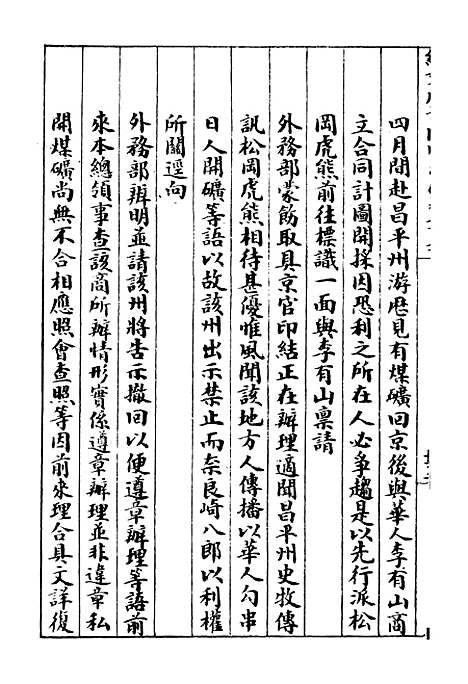 四月間赴昌平州游歷見有煤礦回京後與華人李有山商
立合同計圖開採因恐利之所在人必爭趨是以先行派松
岡虎熊前往標識一面與李有山稟請
外務部蒙飭取具京官印結正在辦理適聞昌平州史牧傳
訊松岡虎熊相待甚優惟風聞該地方人傳播以華人勾串
日人開礦等語以故該州出示禁止而奈良崎八郎以利權
所關逕向
外務部辨明並請該州將告示撤回以便遵章辦理等語前
來本總領事查該商所辦情形實係遵章辦理並非違章私
開煤礦尚無不合相應照會查照等因前來理合具文詳復